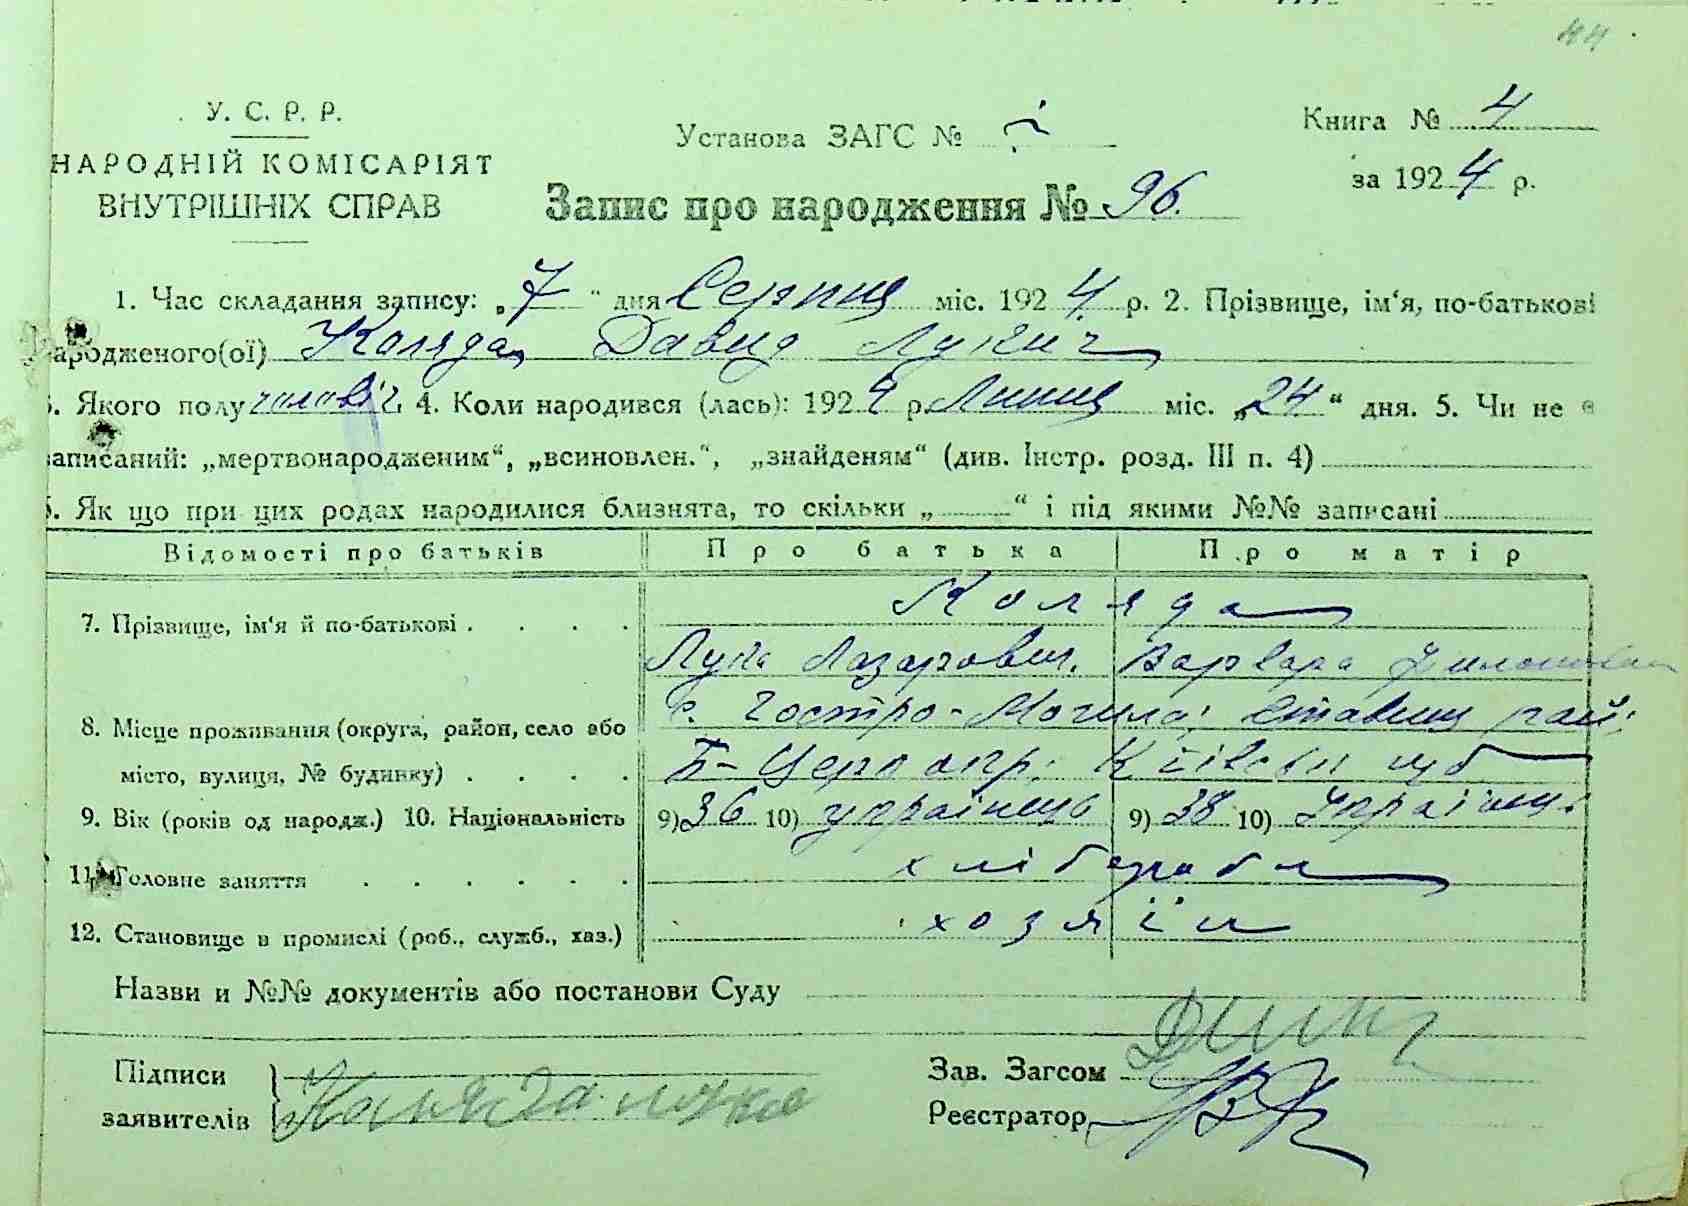 44
У. С. Р. Р.
НАРОДНІЙ КОМІСАРІЯТ
ВНУТРІШНІХ СПРАВ
Установа ЗАГС №
Книга № 4
за 1924 р.
Запис про народження № 96.
1. Час складання запису: „7“ дня Серпня міс. 1924 р. 2. Прізвище, ім‘я, по-батькові
ародженого(ої) Коляда Давид Лукич
3. Якого полу чоловіч. 4. Коли народився (лась): 1924 р. Липня міс. „24“ дня. 5. Чи не є
записаний: „мертвонародженим“, „всиновлен.“, „знайденям“ (див. Інстр. розд. III п. 4)
6. Як що при цих родах народилися близнята, то скільки „ “ і під якими №№ записані
Відомості про батьків Про батька Про матір
7. Прізвище, ім‘я й по-батькові . . . . Коляда
Лука Лазарович. Варвара
8. Місце проживання (округа, район, село або с. Гостро-Могила, Ставищ рай;
місто, вулиця, № будинку) . . . . Б-Церк окр. Київськ губ
9. Вік (років од народж.) 10. Національність 9) 36 10) українець 9) 38 10) Україн
11. Головне заняття . . . . . . хлібороби
12. Становище в промислі (роб., служб., хаз.) хозяїн
Назви и №№ документів або постанови Суду
Підписи Зав. Загсом
заявителів Коляда лука Реєстратор